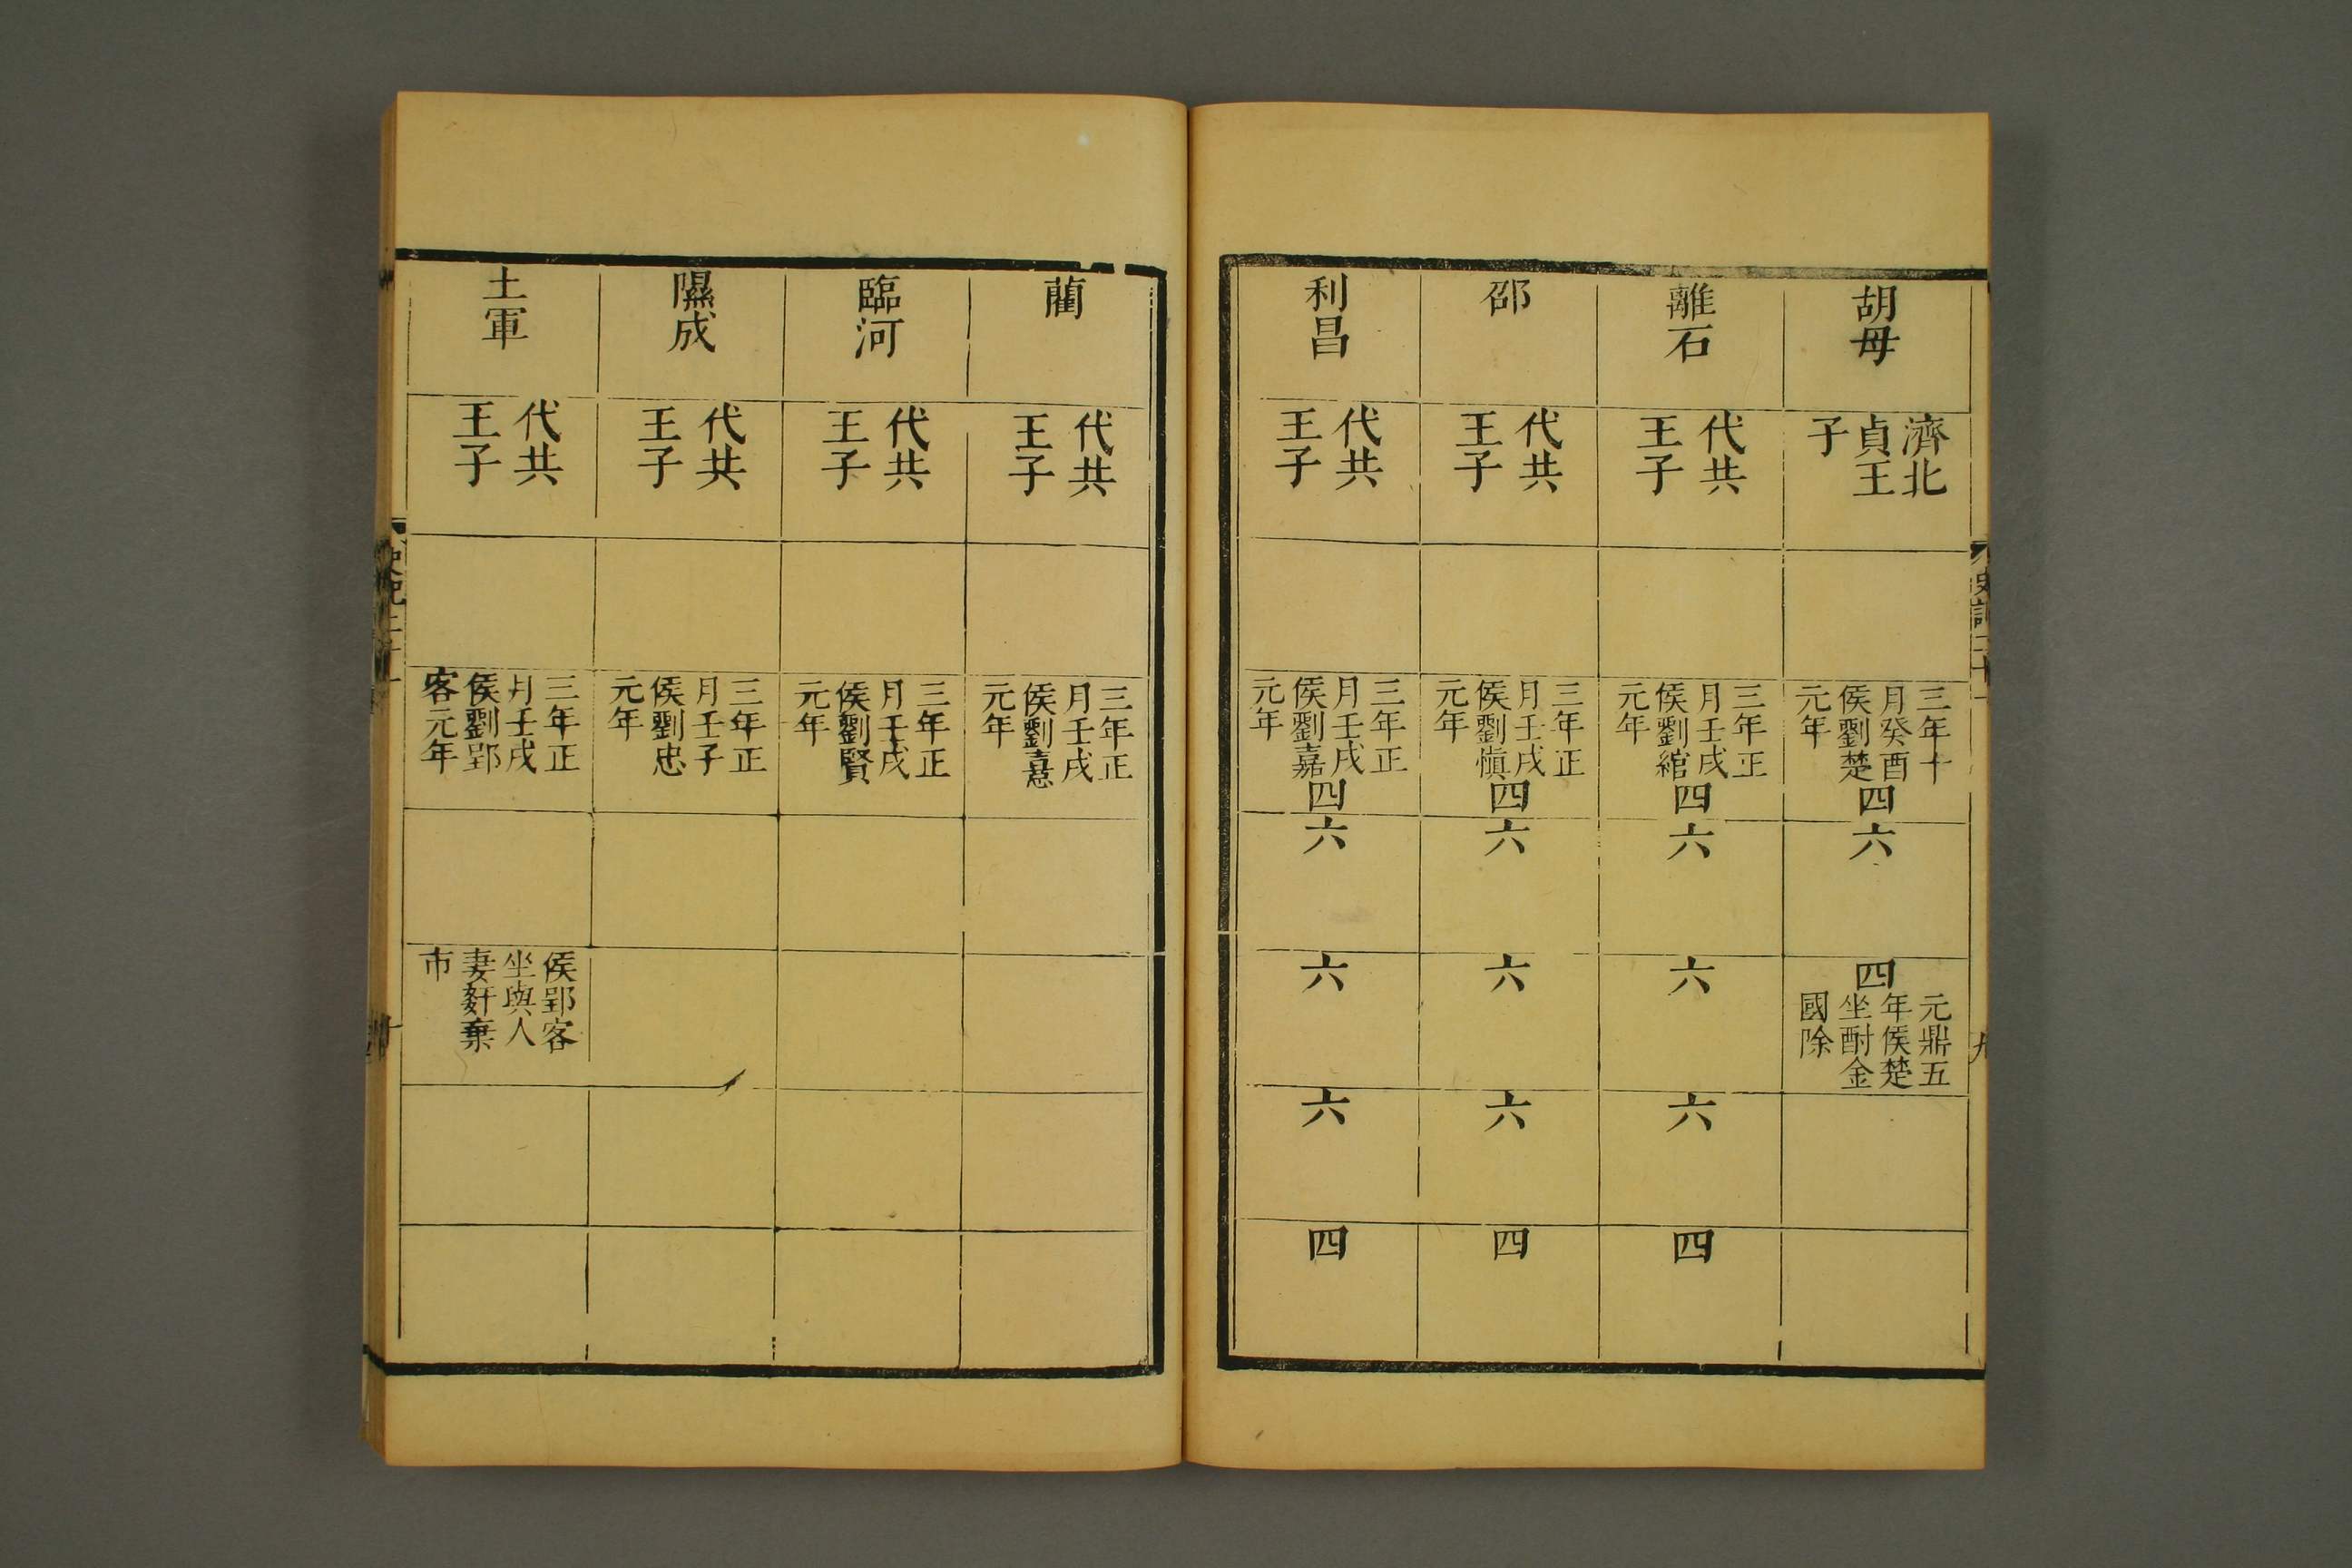 胡母
濟北
貞王
子
三年十
月癸酉
侯劉楚
元年
四
六
四
元鼎五
年侯楚
坐酎金
國除
離石
代共
王子
三年正
月壬戌
侯劉綰
元年
四
六
六
六
四
邵
代共
王子
三年正
月壬戌
侯劉愼
元年
四
六
六
六
四
利昌
代共
王子
三年正
月壬戌
侯劉嘉
元年
四
六
六
六
四
藺
代共
王子
三年正
月壬戌
侯劉憙
元年
臨河
代共
王子
三年正
月壬戌
侯劉賢
元年
隰成
代共
王子
三年正
月壬子
侯劉忠
元年
土軍
代共
王子
三年正
月壬戌
侯劉郢
客元年
侯郢客
坐與人
妻姧棄
市